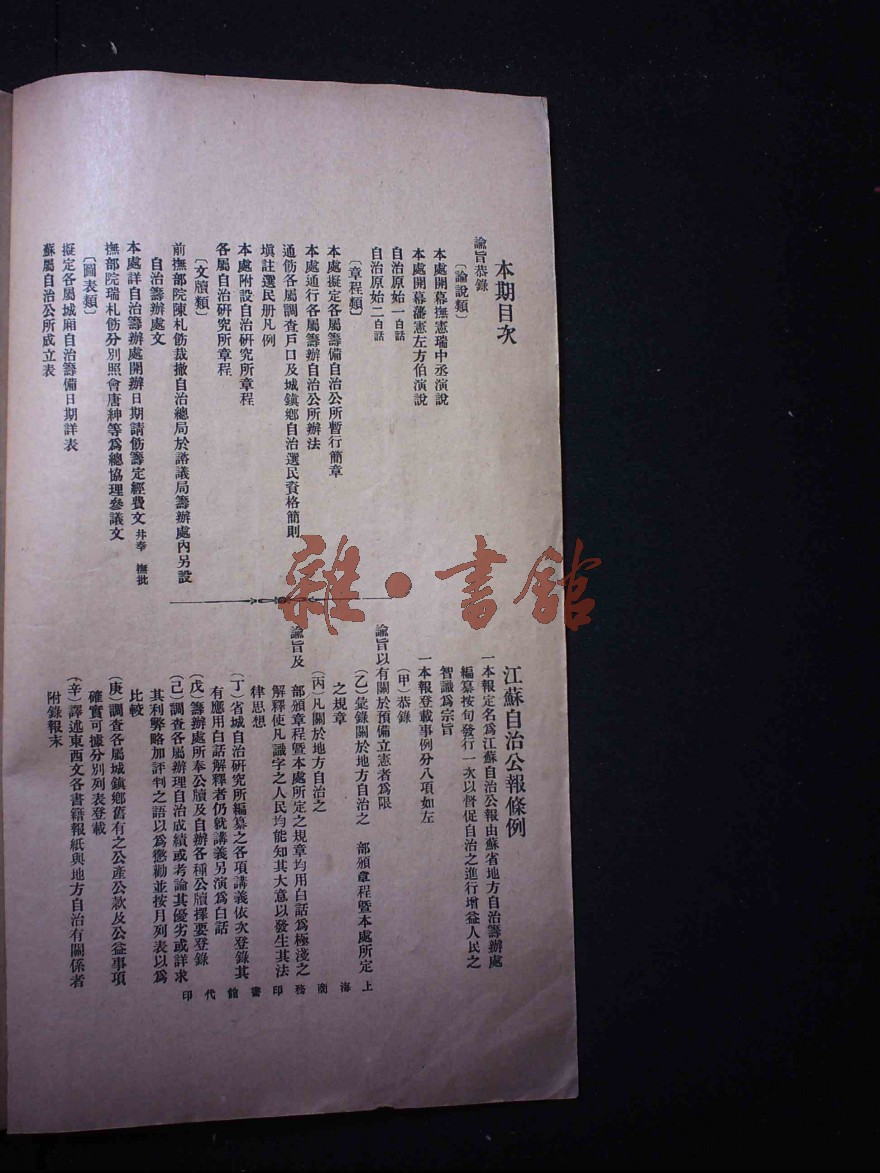 本期目次
諭旨恭錄
〔論說類〕
本處開幕撫憲瑞中丞演說
本處開幕藩憲左方伯演說
自治原始一白話
自治原始二白話
〔章程類〕
本處擬定各屬籌備自治公所暫行簡章
本處通行各屬籌辦自治公所辦法
通飭各屬調查戶口及城鎮鄉自治選民資格簡則
填註選民册凡例
本處附設自治硏究所章程
各屬自治硏究所章程
〔文牘類〕
前撫部院陳札飭裁撤自治總局於諮議局籌辦處內另設
自治籌辦處文
本處詳自治籌辦處開辦日期請飭籌定經費文 幷奉 撫批
撫部院瑞札飭分別照會唐紳等爲總協理參議文
〔圖表類〕
擬定各屬城廂自治籌備日期詳表
蘇屬自治公所成立表
江蘇自治公報條例
一本報定名爲江蘇自治公報由蘇省地方自治籌辦處
編纂按旬發行一次以督促自治之進行增益人民之
智識爲宗旨
一本報登載事例分八項如左
(甲)恭錄
諭旨以有關於預備立憲者爲限
(乙)彙錄關於地方自治之 部頒章程暨本處所定
之規章
(丙)凡關於地方自治之
諭旨及 部頒章程暨本處所定之規章均用白話爲極淺之
解釋使凡識字之人民均能知其大意以發生其法
律思想
(丁)省城自治硏究所編纂之各項講義依次登錄其
有應用白話解釋者仍就講義另演爲白話
(戊)籌辦處所奉公牘及自辦各種公牘擇要登錄
(己)調查各屬辦理自治成績或考論其優劣或詳求
其利弊略加評判之語以爲懲勸並按月列表以爲
比較
(庚)調查各屬城鎮鄉舊有之公產公款及公益事項
確實可據分別列表登載
(辛)譯述東西文各書籍報紙與地方自治有關係者
附錄報末
上海商務印書館代印
雜·書館